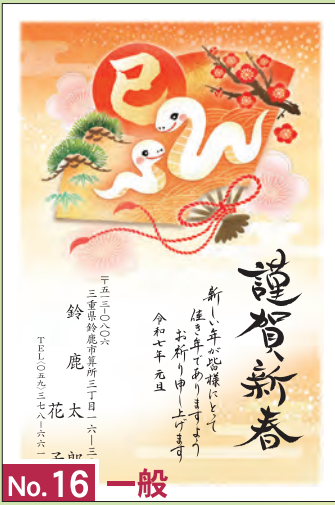 巳
謹賀新春
新しい年が皆様にとって
佳き年でありますよう
お祈り申し上げます
令和七年 元旦
〒五一三-〇八〇六
三重県鈴鹿市算所三丁目一六-三
鈴鹿太郎
花子
TEL(〇五九)三七八-六六一
No.16 一般